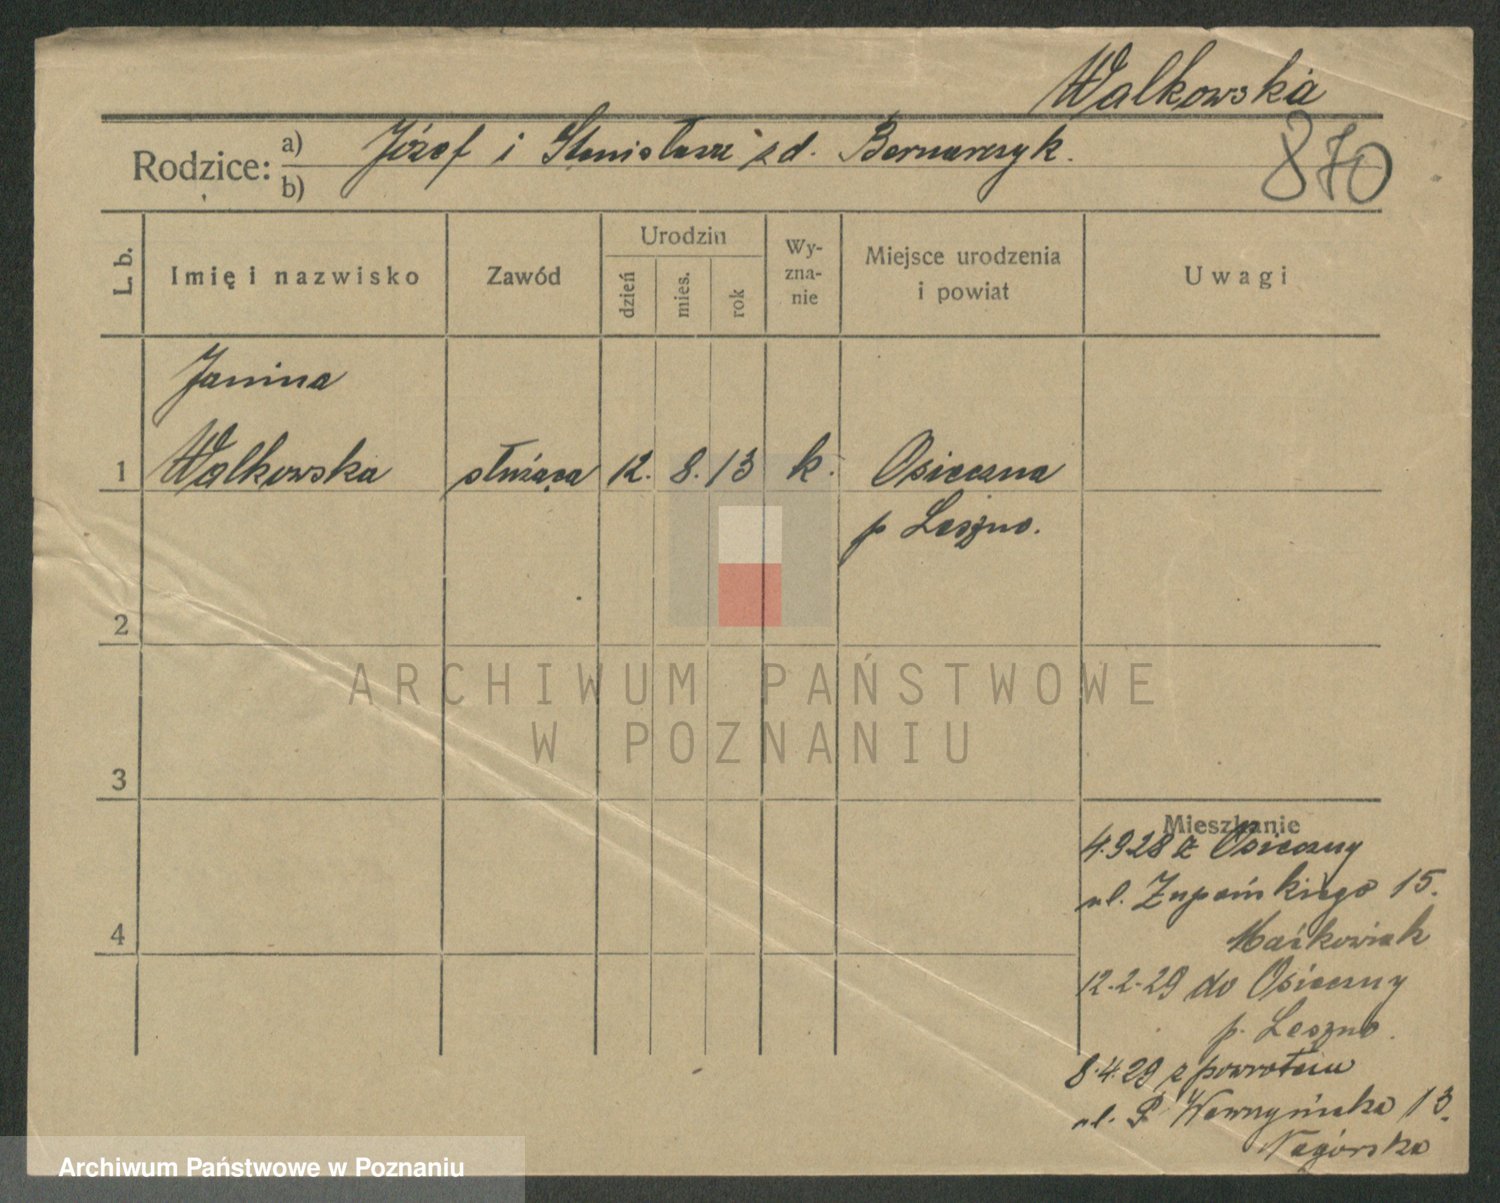 Walkowska
870
Rodzice: a) Józef i Stanisława z d. Bernarczyk.
b)
L. b.
Imię i nazwisko
Zawód
Urodzin
dzień
mies.
rok
Wy-
zna-
nie
Miejsce urodzenia
i powiat
Uwagi
Janina
1 Walkowska służąca 12. 8. 13 k. Osieczna
p Leszno.
2
ARCHIWUM PAŃSTWOWE
W POZNANIU
3
Mieszkanie
4.9 28 z Osieczny
ul. Żupańskiego 15.
Maćkowiak
4
12.2.29 do Osieczny
p. Leszno.
8.4.29 z powrotem
ul. P Wawrzyniaka 13.
Nagórska
Archiwum Państwowe w Poznaniu